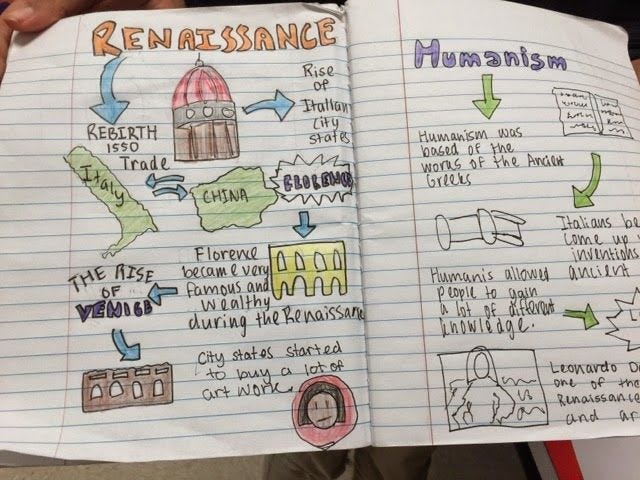 RENAISSANCE
REBIRTH
1550
Rise
of
Italian
city
states
Trade
Italy
CHINA
FLORENCE
Florence
became very
famous and
wealthy
during the Renaissance
THE RISE
OF
VENICE
City states started
to buy a lot of
art work.
Humanism
Humanism was
based of the
works of the Ancient
Greeks
Italians be
come up
inventions
ancient
Humanis allowed
people to gain
a lot of different
knowledge.
L
Leonardo D
one of the
Renaissance
and ar